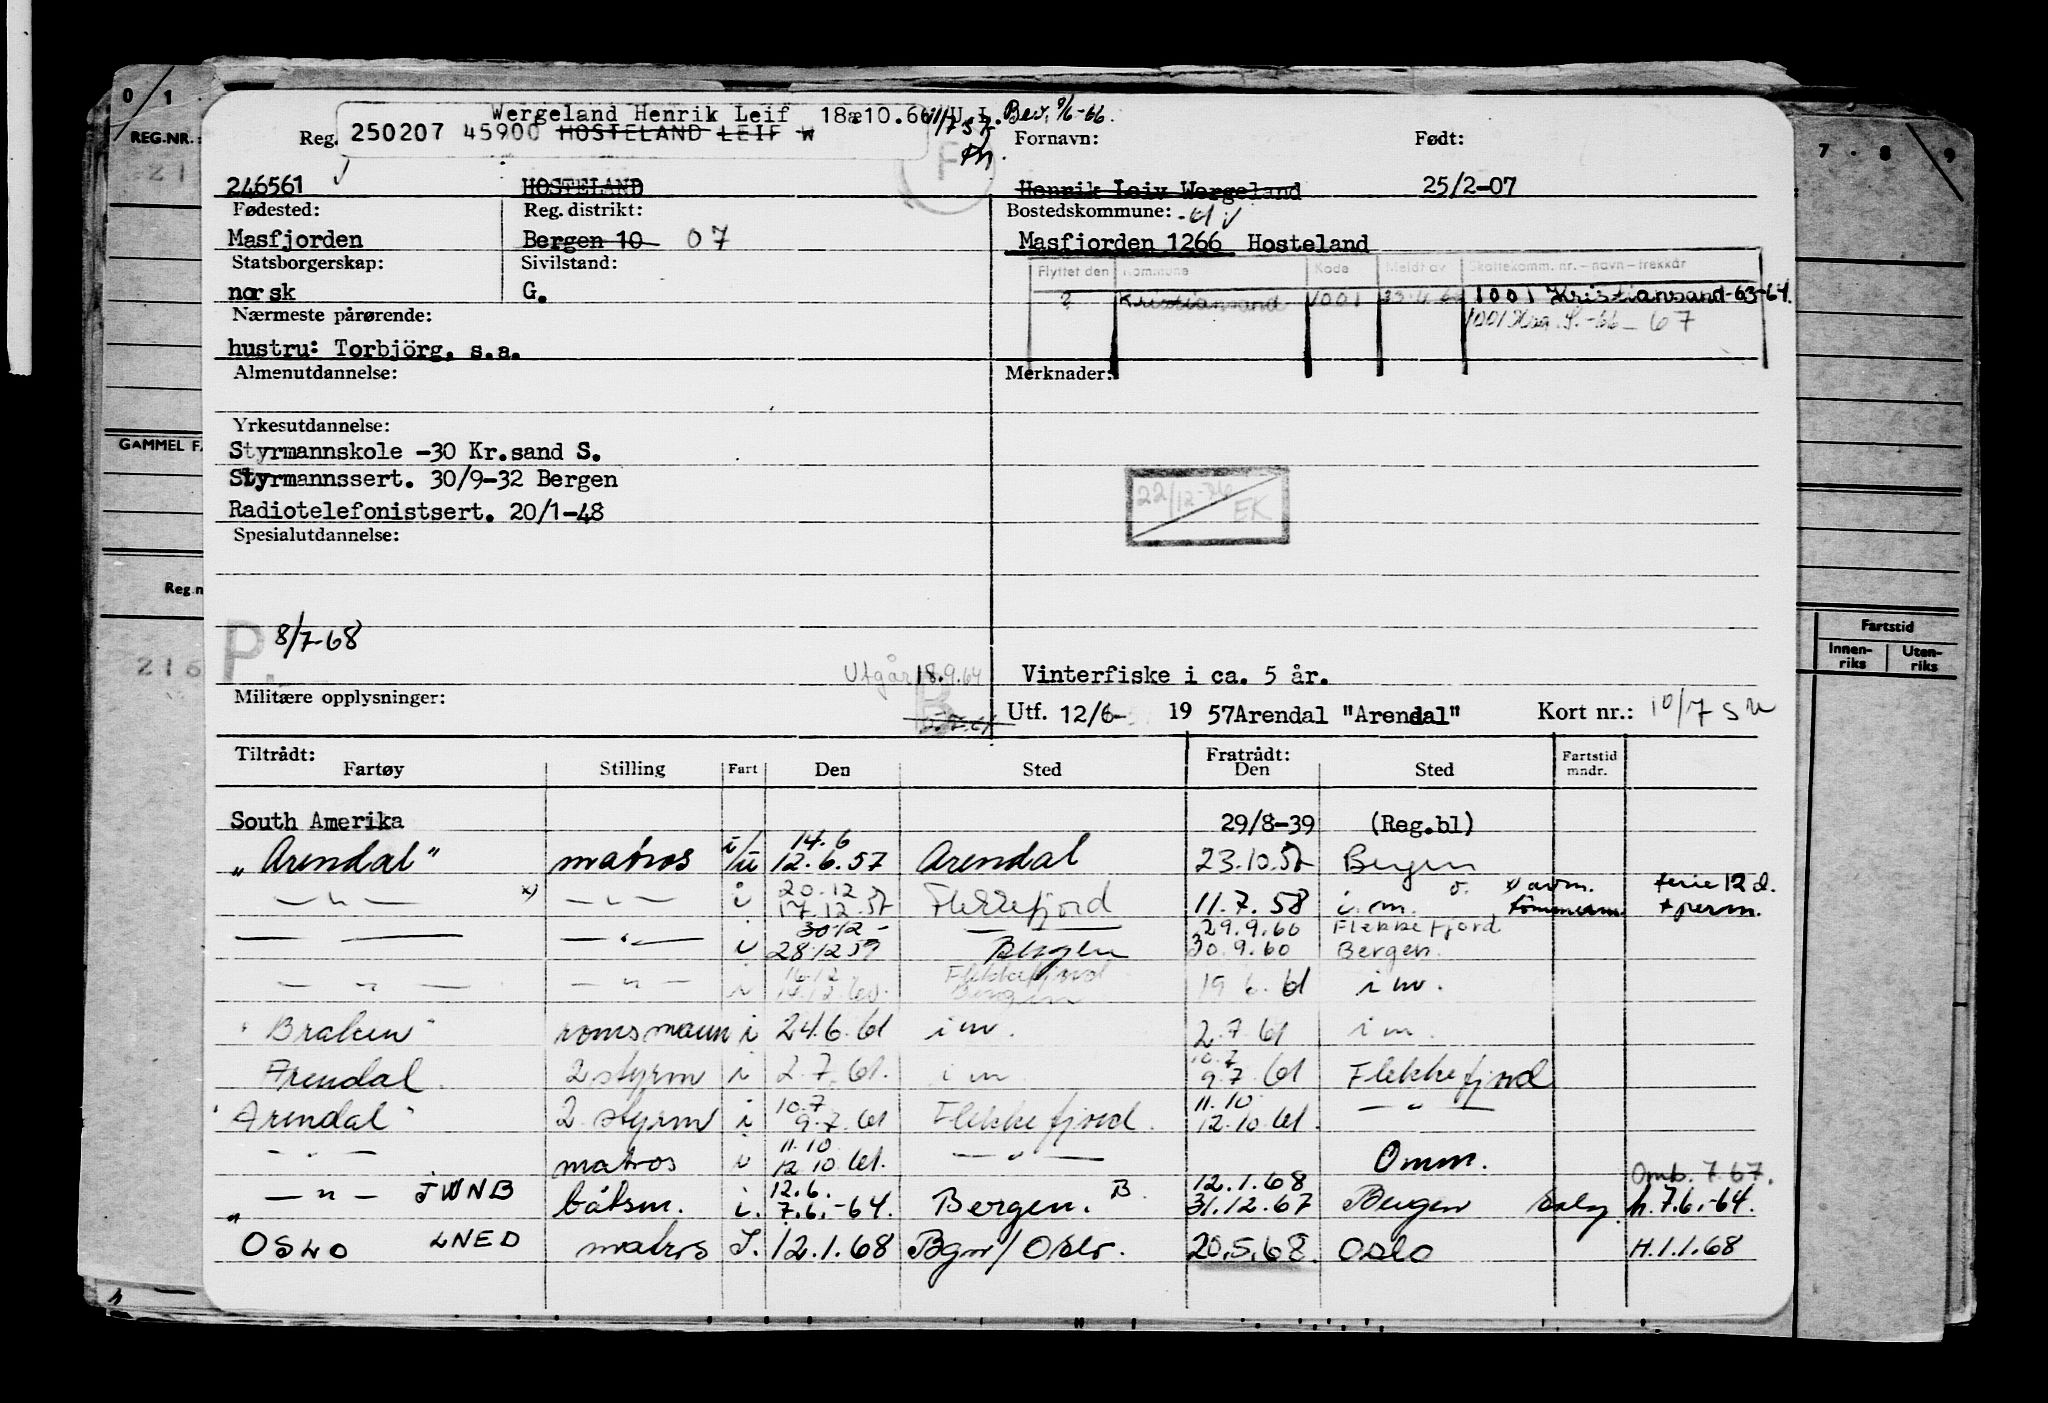 0 1
REG.NR.:
Wergeland Henrik Leif 18æ10.66
Bev. 9/6-66.
Reg. 250207 45900 HOSTELAND LEIF W
Fornavn: Født:
F
246561 HOSTELAND Henrik Leiv Wergeland 25/2-07
Fødested: Reg. distrikt: Bostedskommune:
Masfjorden Bergen 10 07 Masfjorden 1266 Hosteland
Statsborgerskap: Sivilstand:
Flyttet den Kommune Kode Meldt av Skattekomm. nr. - navn - trekkår
norsk G. ? Kristiansand 1001 1001 Kristiansand-63-64.
Nærmeste pårørende:
-66-67
hustru: Torbjörg, s.a.
Almenutdannelse: Merknader:
Yrkesutdannelse:
GAMMEL F.
Styrmannskole -30 Kr.sand S.
Styrmannssert. 30/9-32 Bergen
22/12 EK
Radiotelefonistsert. 20/1-48
Spesialutdannelse:
Reg.n
P. 8/7-68
Fartstid
Innenriks Utenriks
216
Utgår 18.9.64 Vinterfiske i ca. 5 år.
Militære opplysninger: B Utf. 12/6- 19 57Arendal "Arendal" Kort nr.: 10/7
Tiltrådt: Fratrådt:
Fartøy Stilling Fart Den Sted Den Sted Fartstid mndr.
South Amerika 29/8-39 (Reg.bl)
14.6
"Arendal" matros i/u 12.6.57 Arendal 23.10.57 Bergen
20.12
— " — x) — " — i 17.12.57 Flekkefjord 11.7.58 i.m. x) avm. tømmerm. ferie 12 d. + perm.
30.12 — 29.9.60 Flekkefjord
— — " — i 28.12.59 Bergen 30.9.60 Bergen.
Flekkefjord
— " — — " — i Bergen 19.6.61 i m.
"Braken" romsmann i 24.6.61 i m. 2.7.61 i m.
10.7
Arendal 2 styrm i 2.7.61. i m 9.7.61 Flekkefjord
10.7 11.10
"Arendal" 2 styrm i 9.7.61 Flekkefjord. 12.10.61. — " —
11.10
— " — matros i 12.10.61. — " — Omm.
12.6. 12.1.68 Omb. 7.67.
— " — JWNB båtsm. i. 7.6.-64. Bergen. B. 31.12.67 Bergen h.7.6.-64.
OSLO LNED matros I. 12.1.68 Bgn/Oslo. 20.5.68. Oslo H.1.1.68
7 8 9